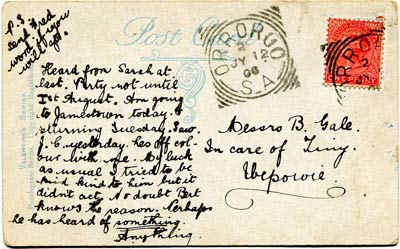 P.S
Leap Fred
won't you
will ye.
Post Card
VALENTINE'S SERIES
Heard from Sarah at
last. Party not until
1st August. Am going
to Jamestown today.
returning Tuesday. Saw
J. C. yesterday. hes off col-
our with me. My luck
as usual I tried to be
kind to him but it
didn't act. No doubt Bert
knows the reason. Perhaps
he has heard of something.
Anything.
ORROROO
2
JY 12
06
S.A
Messrs B. Gale.
In care of Tiny.
Wepowie.